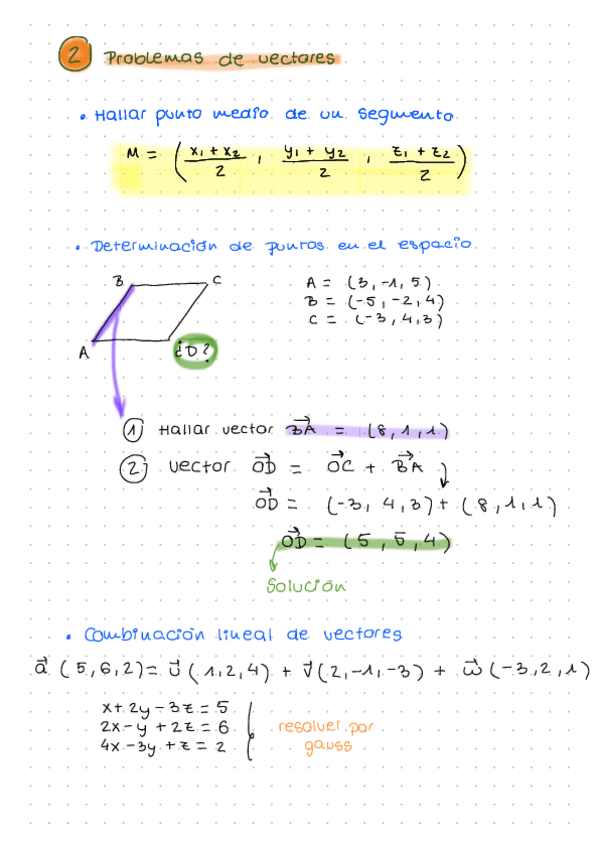 2 Problemas de vectores
• Hallar punto medio de un segmento
M = ( x₁ + x₂ / 2 , y₁ + y₂ / 2 , z₁ + z₂ / 2 )
• Determinación de puntos en el espacio
B C
A ¿D?
A = (3, -1, 5)
B = (-5, -2, 4)
C = (-3, 4, 3)
1 Hallar vector BA = (8, 1, 1)
2 Vector OD = OC + BA
OD = (-3, 4, 3) + (8, 1, 1)
OD = (5, 5, 4)
Solución
• Combinación lineal de vectores
a (5, 6, 2) = u (1, 2, 4) + v (2, -1, -3) + w (-3, 2, 1)
x + 2y - 3z = 5
2x - y + 2z = 6
4x - 3y + z = 2
resolver por
gauss